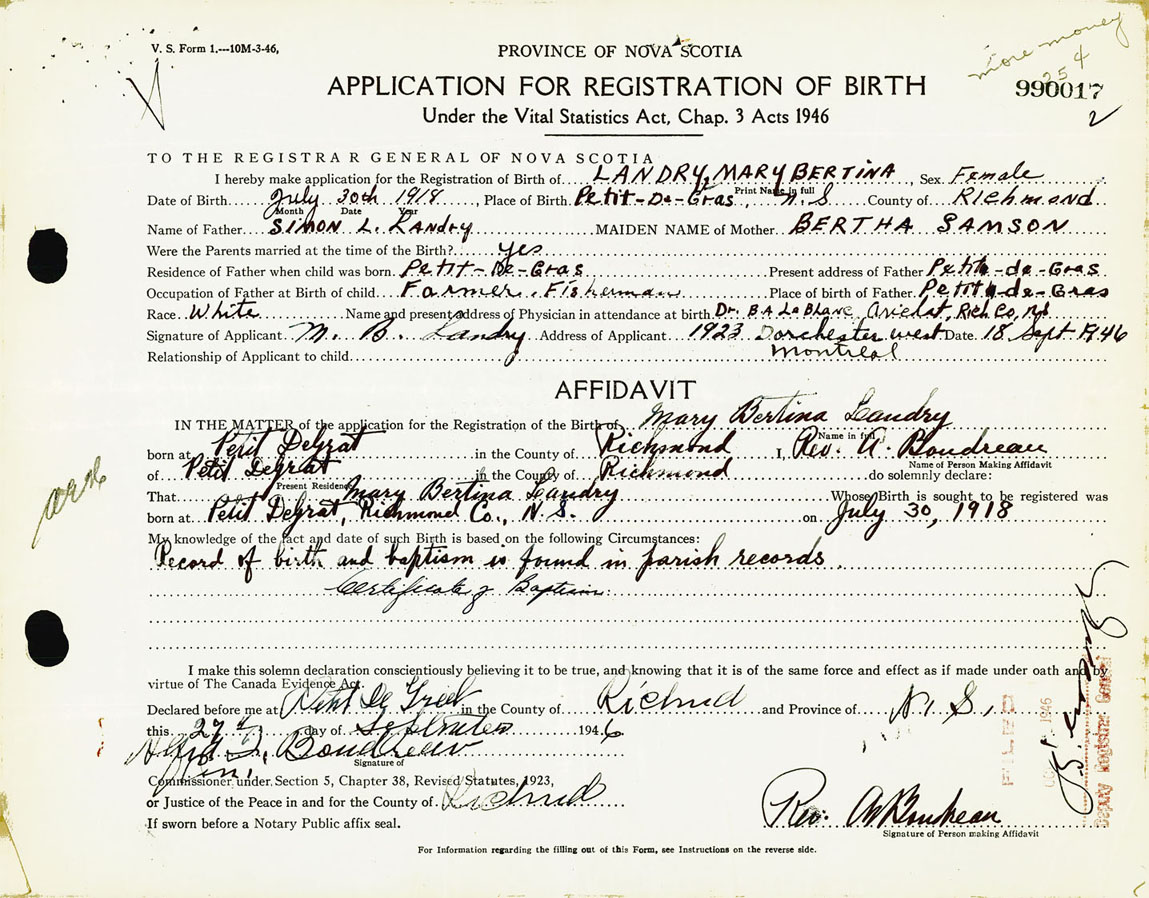 V. S. Form 1.---10M-3-46,
PROVINCE OF NOVA SCOTIA
more money
254
APPLICATION FOR REGISTRATION OF BIRTH
990017
2
Under the Vital Statistics Act, Chap. 3 Acts 1946
TO THE REGISTRAR GENERAL OF NOVA SCOTIA
I hereby make application for the Registration of Birth of LANDRY, MARY BERTINA, Sex Female
Print Name in full
Date of Birth July 30th 1918, Place of Birth Petit-De-Gras, N.S County of Richmond
Month Date Year
Name of Father Simon L. Landry MAIDEN NAME of Mother BERTHA SAMSON
Were the Parents married at the time of the Birth? yes
Residence of Father when child was born Petit-De-Gras Present address of Father Petit-de-Gras
Occupation of Father at Birth of child Farmer. Fisherman Place of birth of Father Petit-de-Gras
Race White Name and present address of Physician in attendance at birth Dr. B A LeBlanc, Arichat, Rich Co, NS
Signature of Applicant M. B. Landry Address of Applicant 1923 Dorchester west Date 18 Sept 1946
Montreal
Relationship of Applicant to child
AFFIDAVIT
IN THE MATTER of the application for the Registration of the Birth of Mary Bertina Landry
Name in full
born at Petit Degrat in the County of Richmond I, Rev. A. Boudreau
Name of Person Making Affidavit
of Petit Degrat in the County of Richmond do solemnly declare:
Present Residence
That Mary Bertina Landry Whose Birth is sought to be registered was
born at Petit Degrat, Richmond Co., N.S. on July 30, 1918
My knowledge of the fact and date of such Birth is based on the following Circumstances:
Record of birth and baptism is found in parish records.
Certificate of Baptism.
I make this solemn declaration conscientiously believing it to be true, and knowing that it is of the same force and effect as if made under oath and by
virtue of The Canada Evidence Act.
Declared before me at Petit De Grat in the County of Richmd and Province of N. S.
this 27th day of September 1946
Boudreau
Signature of
Commissioner under Section 5, Chapter 38, Revised Statutes, 1923,
or Justice of the Peace in and for the County of Richmd
If sworn before a Notary Public affix seal.
Rev. A Boudreau
Signature of Person making Affidavit
FILED
1946
Deputy Registrar General
For Information regarding the filling out of this Form, see Instructions on the reverse side.